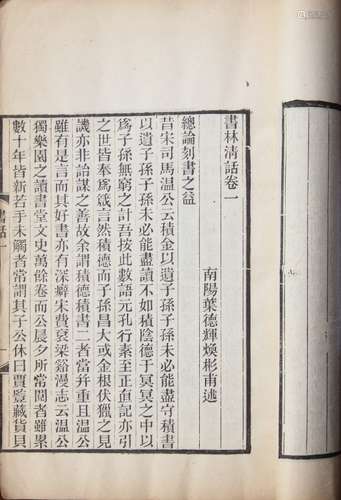 書林清話卷一
南陽葉德輝煥彬甫述
總論刻書之益
昔宋司馬溫公云積金以遺子孫子孫未必能盡守積書
以遺子孫子孫未必能盡讀不如積陰德于冥冥之中以
爲子孫無窮之計吾按此數語元孔行素至正直記亦引
之世皆奉爲箴言然積德而子孫昌大或金根伏獵之見
譏亦非詒謀之善故余謂積德積書二者當并重且溫公
雖有是言而其好書亦有深癖宋費袞梁谿漫志云溫公
獨樂園之讀書堂文史萬餘卷而公晨夕所常閱者雖累
數十年皆新若手未觸者常謂其子公休曰賈豎藏貨貝